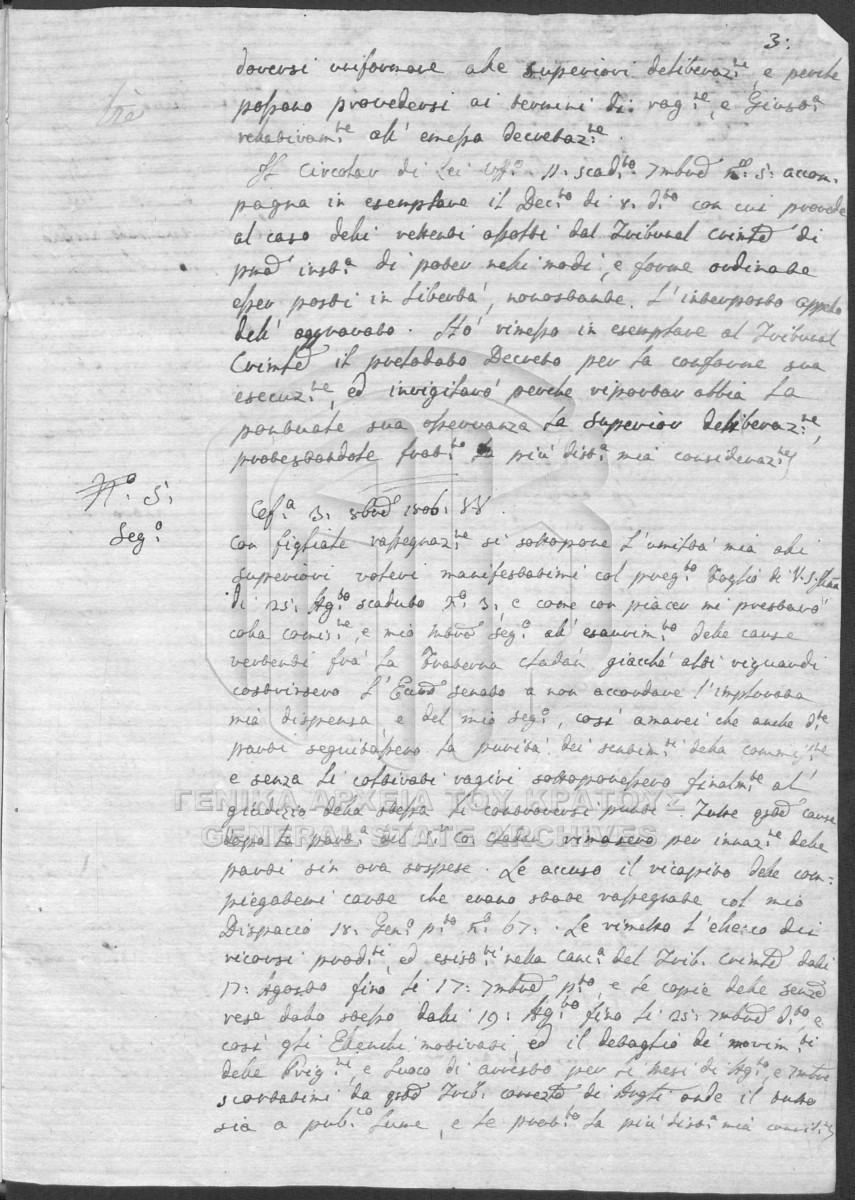 3:
doversi uniformare alle superiori deliberaz:ne, e perche
possano provedersi ai termini di rag:ne, e Giust:a
relativam:te all' emessa decretaz:ne.
Il Circolar di Lei Uff:o 11: scad:to 7mbre N:o 5: accom-
pagna in esemplare il Dec:to di 8. d:to con cui provede
al caso delli rettendi assolti dal Tribunal Crimle di
pma inst:a di poter nelli modi, e forme ordinate
esser posti in libertà, nonostante l'interposto appello
dell' aggravato. Hò rimesso in esemplare al Tribunal
Crimle il prelodato Decreto per la conforme sua
esecuz:ne, ed invigilarò perche riportar abbia la
pontuale sua osservanza la superior deliberaz:ne,
protestandole frat:to la più dist:a mia consideraz:ne
N:o 5:
Seg:o
Cef:a 3: 8bre 1806: SV.
Con figliale rassegnaz:ne si sottopone l'umiltà mia alli
superiori voleri manifestatimi col preg:to Foglio di V:S: Illma
di 25: Ag:to scaduto N:o 3:, e come con piacer mi prestarò
colla comis:ne, e mio Seg:o all' esaurim:to delle cause
vertenti frà la Fraterna giacchè alti riguardi
costrinsero l'Eccmo Senato a non accordare l'implorata
mia dispensa e del mio Seg:o, così amarei che anche d:te
parti seguitassero la purità dei sentim:ti della commis:ne
e senza li coltivati ragiri sottoponessero finalm:te al
giudizio della stessa li controversi punti. Tutte qste cause
dopo la part:a del rimasero per inaz:ne delle
parti sin ora sospese. Le accuso il ricapito delle com-
piegatemi carte che erano state rassegnate col mio
Dispaccio 18: Gen:o p:to N:o 67:. Le rimetto l'elenco dei
ricorsi prod:ti, ed esist:ti nella Canc:a del Trib. Crimle dalli
17: Agosto fino li 17: 7mbre p:to, e le copie delle sentze
rese dallo stesso dalli 19: Ag:to fino li 25: 7mbre d:to, e
così gli Elenchi motivati, ed il detaglio de' movim:ti
delle Prig:ni, e Luoco di arresto per li mesi di Ag:to, e 7mbre
da qsto Trib: onde il tutto
sia a pub:co lume, e le prot:to la più dist:a mia consid:ne
ΓΕΝΙΚΑ ΑΡΧΕΙΑ ΤΟΥ ΚΡΑΤΟΥΣ
GENERAL STATE ARCHIVES